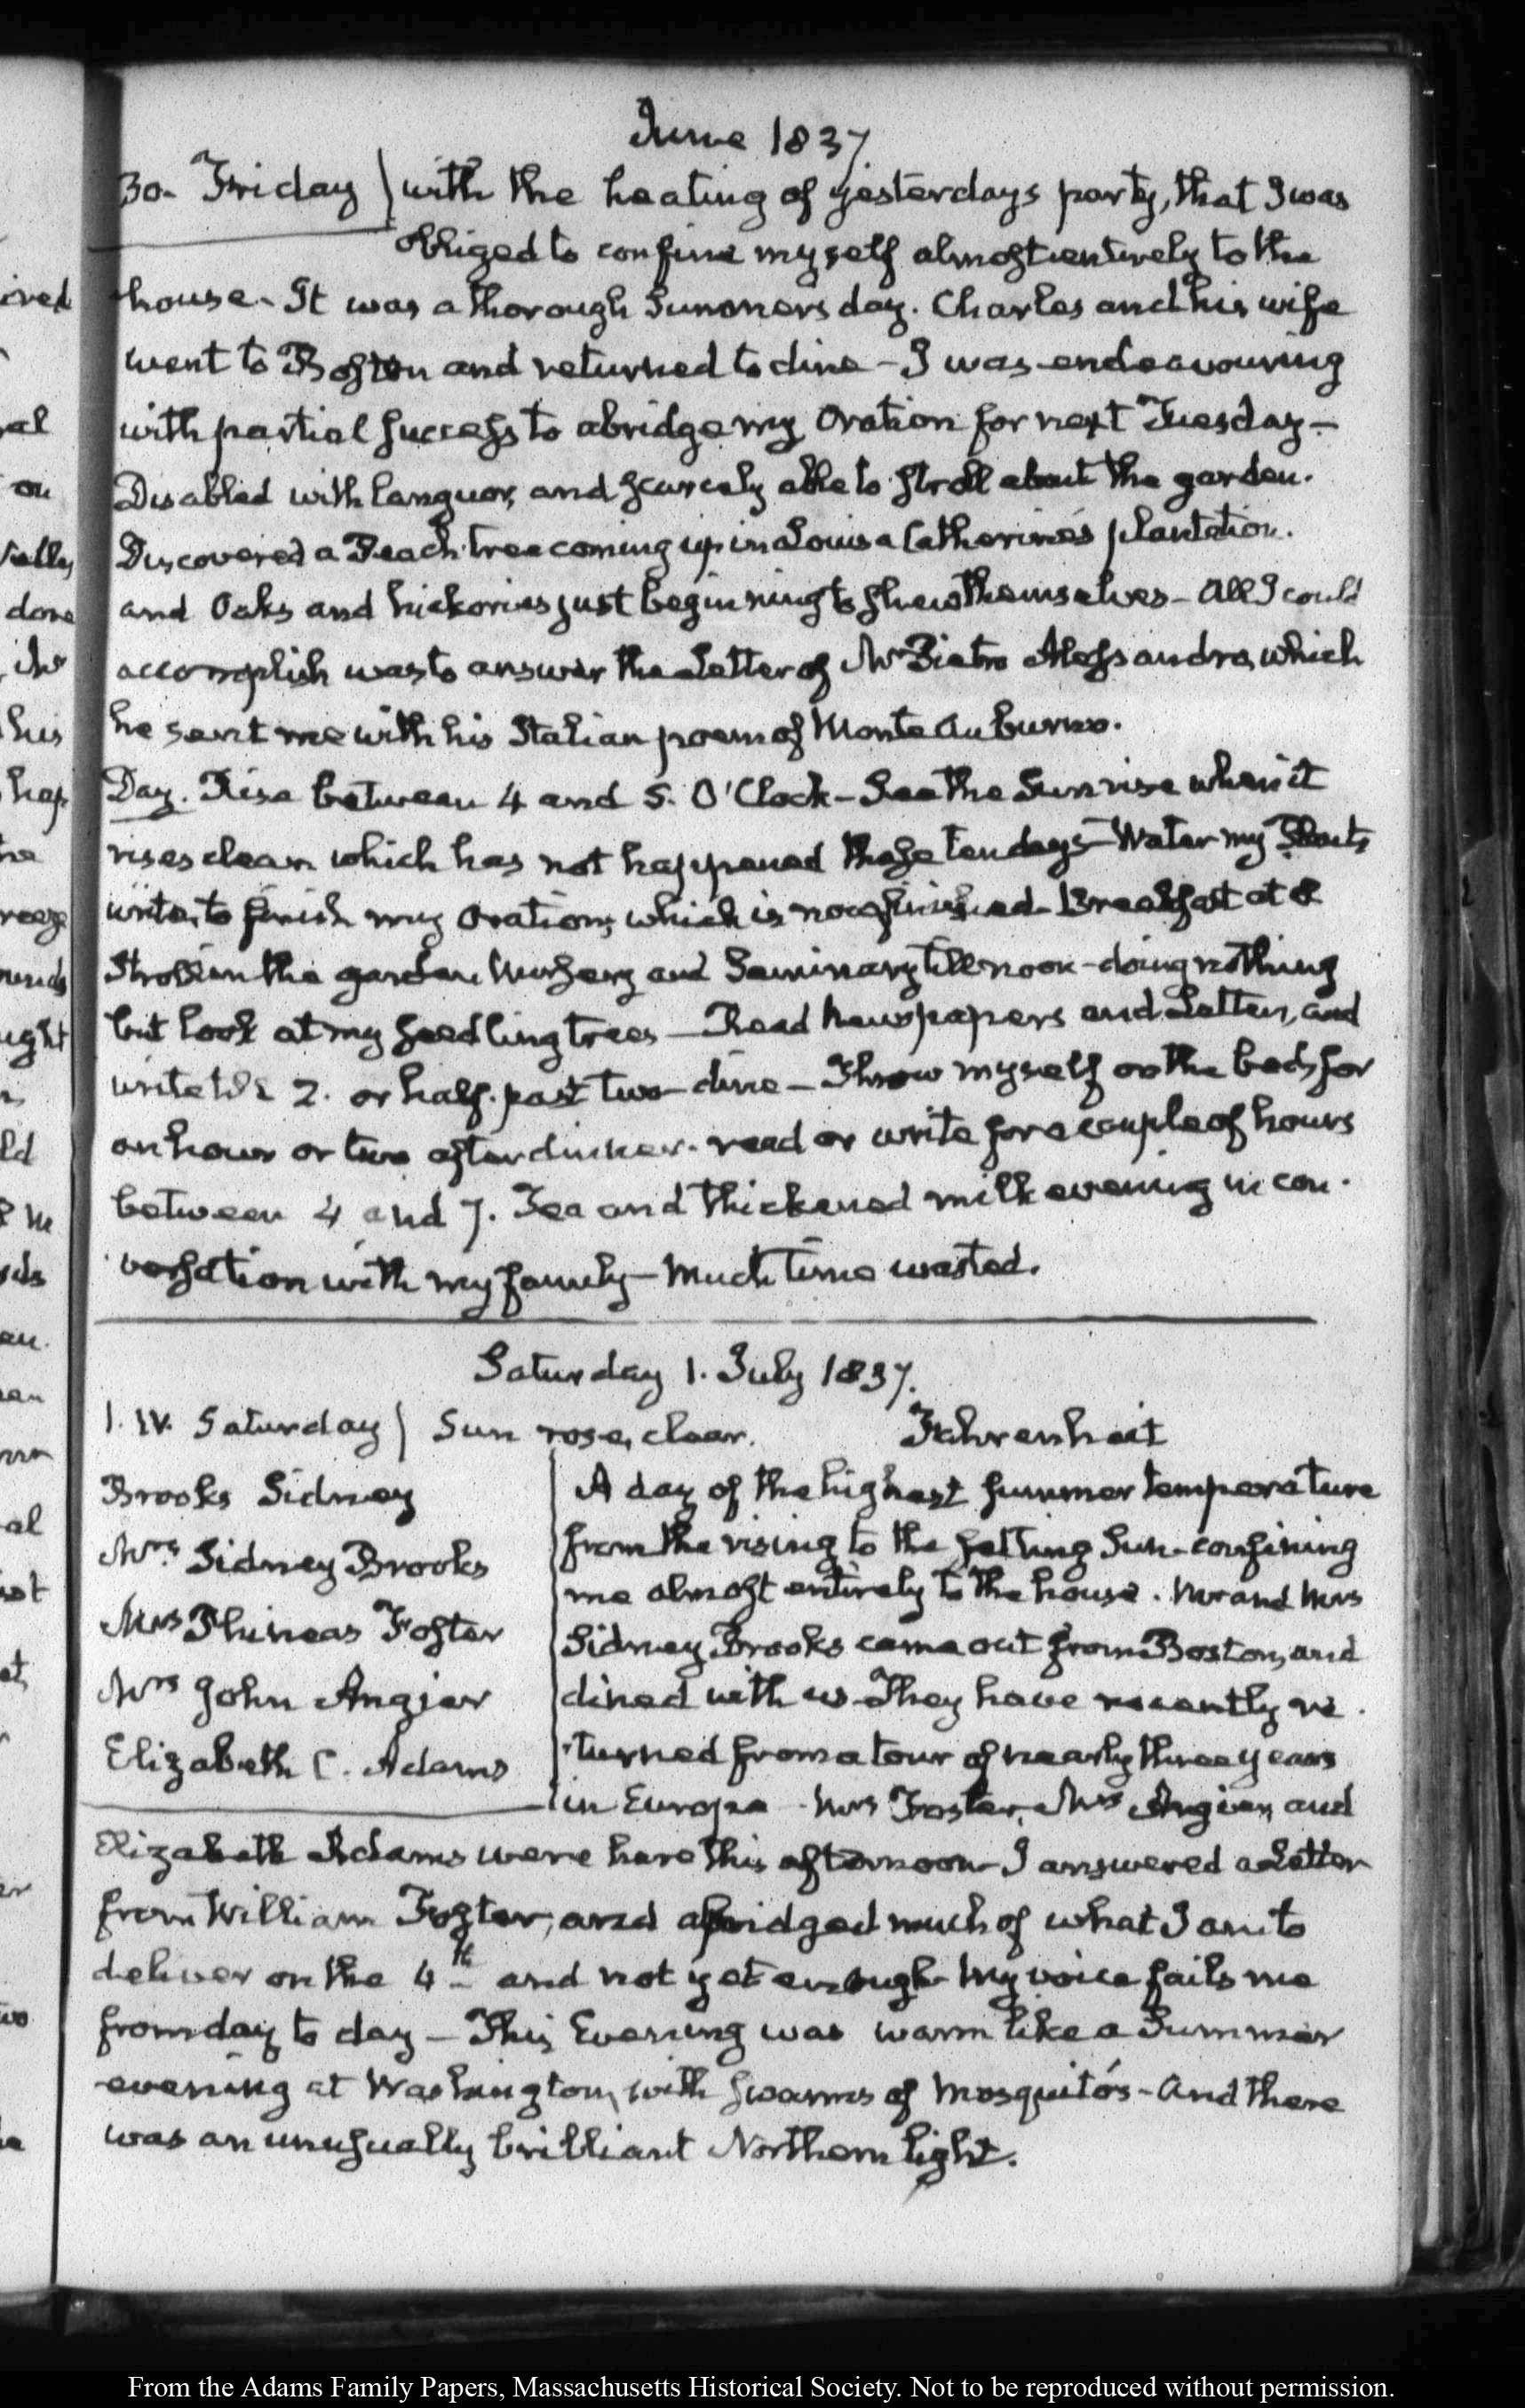 June 1837
30. Friday) with the heating of yesterdays party, that I was
obliged to confine myself almost entirely to the
house. It was a thorough Summers day. Charles and his wife
went to Boston and returned to dine – I was endeavouring
with partial success to abridge my Oration for next Tuesday –
Disabled with languor, and scarcely able to stroll about the garden.
Discovered a Peach tree coming up in Louisa Catherine's plantation.
and Oaks and hickories just beginning to shew themselves – All I could
accomplish was to answer the Letter of Mr Pietro Alessandro, which
he sent me with his Italian poem of Monte Auburno.
Day. Rise between 4 and 5. O'Clock – See the Sun rise when it
rises clear which has not happened these ten days – Water my Plants
write, to finish my Oration, which is now finished – Breakfast at 8
Stroll in the garden Nursery and Seminary till noon – doing nothing
but look at my seedling trees – Read Newspapers and Letters, and
write till 2. or half. past two – dine – Throw myself on the bed for
an hour or two after dinner. read or write for a couple of hours
between 4 and 7. Tea and thickened milk evening in con.
versation with my family – Much time wasted.
Saturday 1. July 1837.
1. IV. Saturday) Sun rose, clear. Fahrenheit
Brooks Sidney
Mrs Sidney Brooks
Mrs Phineas Foster
Mrs John Angier
Elizabeth C. Adams
A day of the highest summer temperature
from the rising to the setting Sun – confining
me almost entirely to the house. Mr and Mrs
Sidney Brooks came out from Boston, and
dined with us – They have recently re.
turned from a tour of nearly three years
in Europe – Mrs Foster, Mrs Angier, and
Elizabeth Adams were here this afternoon – I answered a Letter
from William Foster, and abridged much of what I am to
deliver on the 4th and not yet enough – My voice fails me
from day to day – This Evening was warm like a Summer
evening at Washington, with swarms of Mosquitó's – And there
was an unusually brilliant Northern light.
ived
al
on
done
Mr
his
hap
ne
ought
ld
al
at
From the Adams Family Papers, Massachusetts Historical Society. Not to be reproduced without permission.